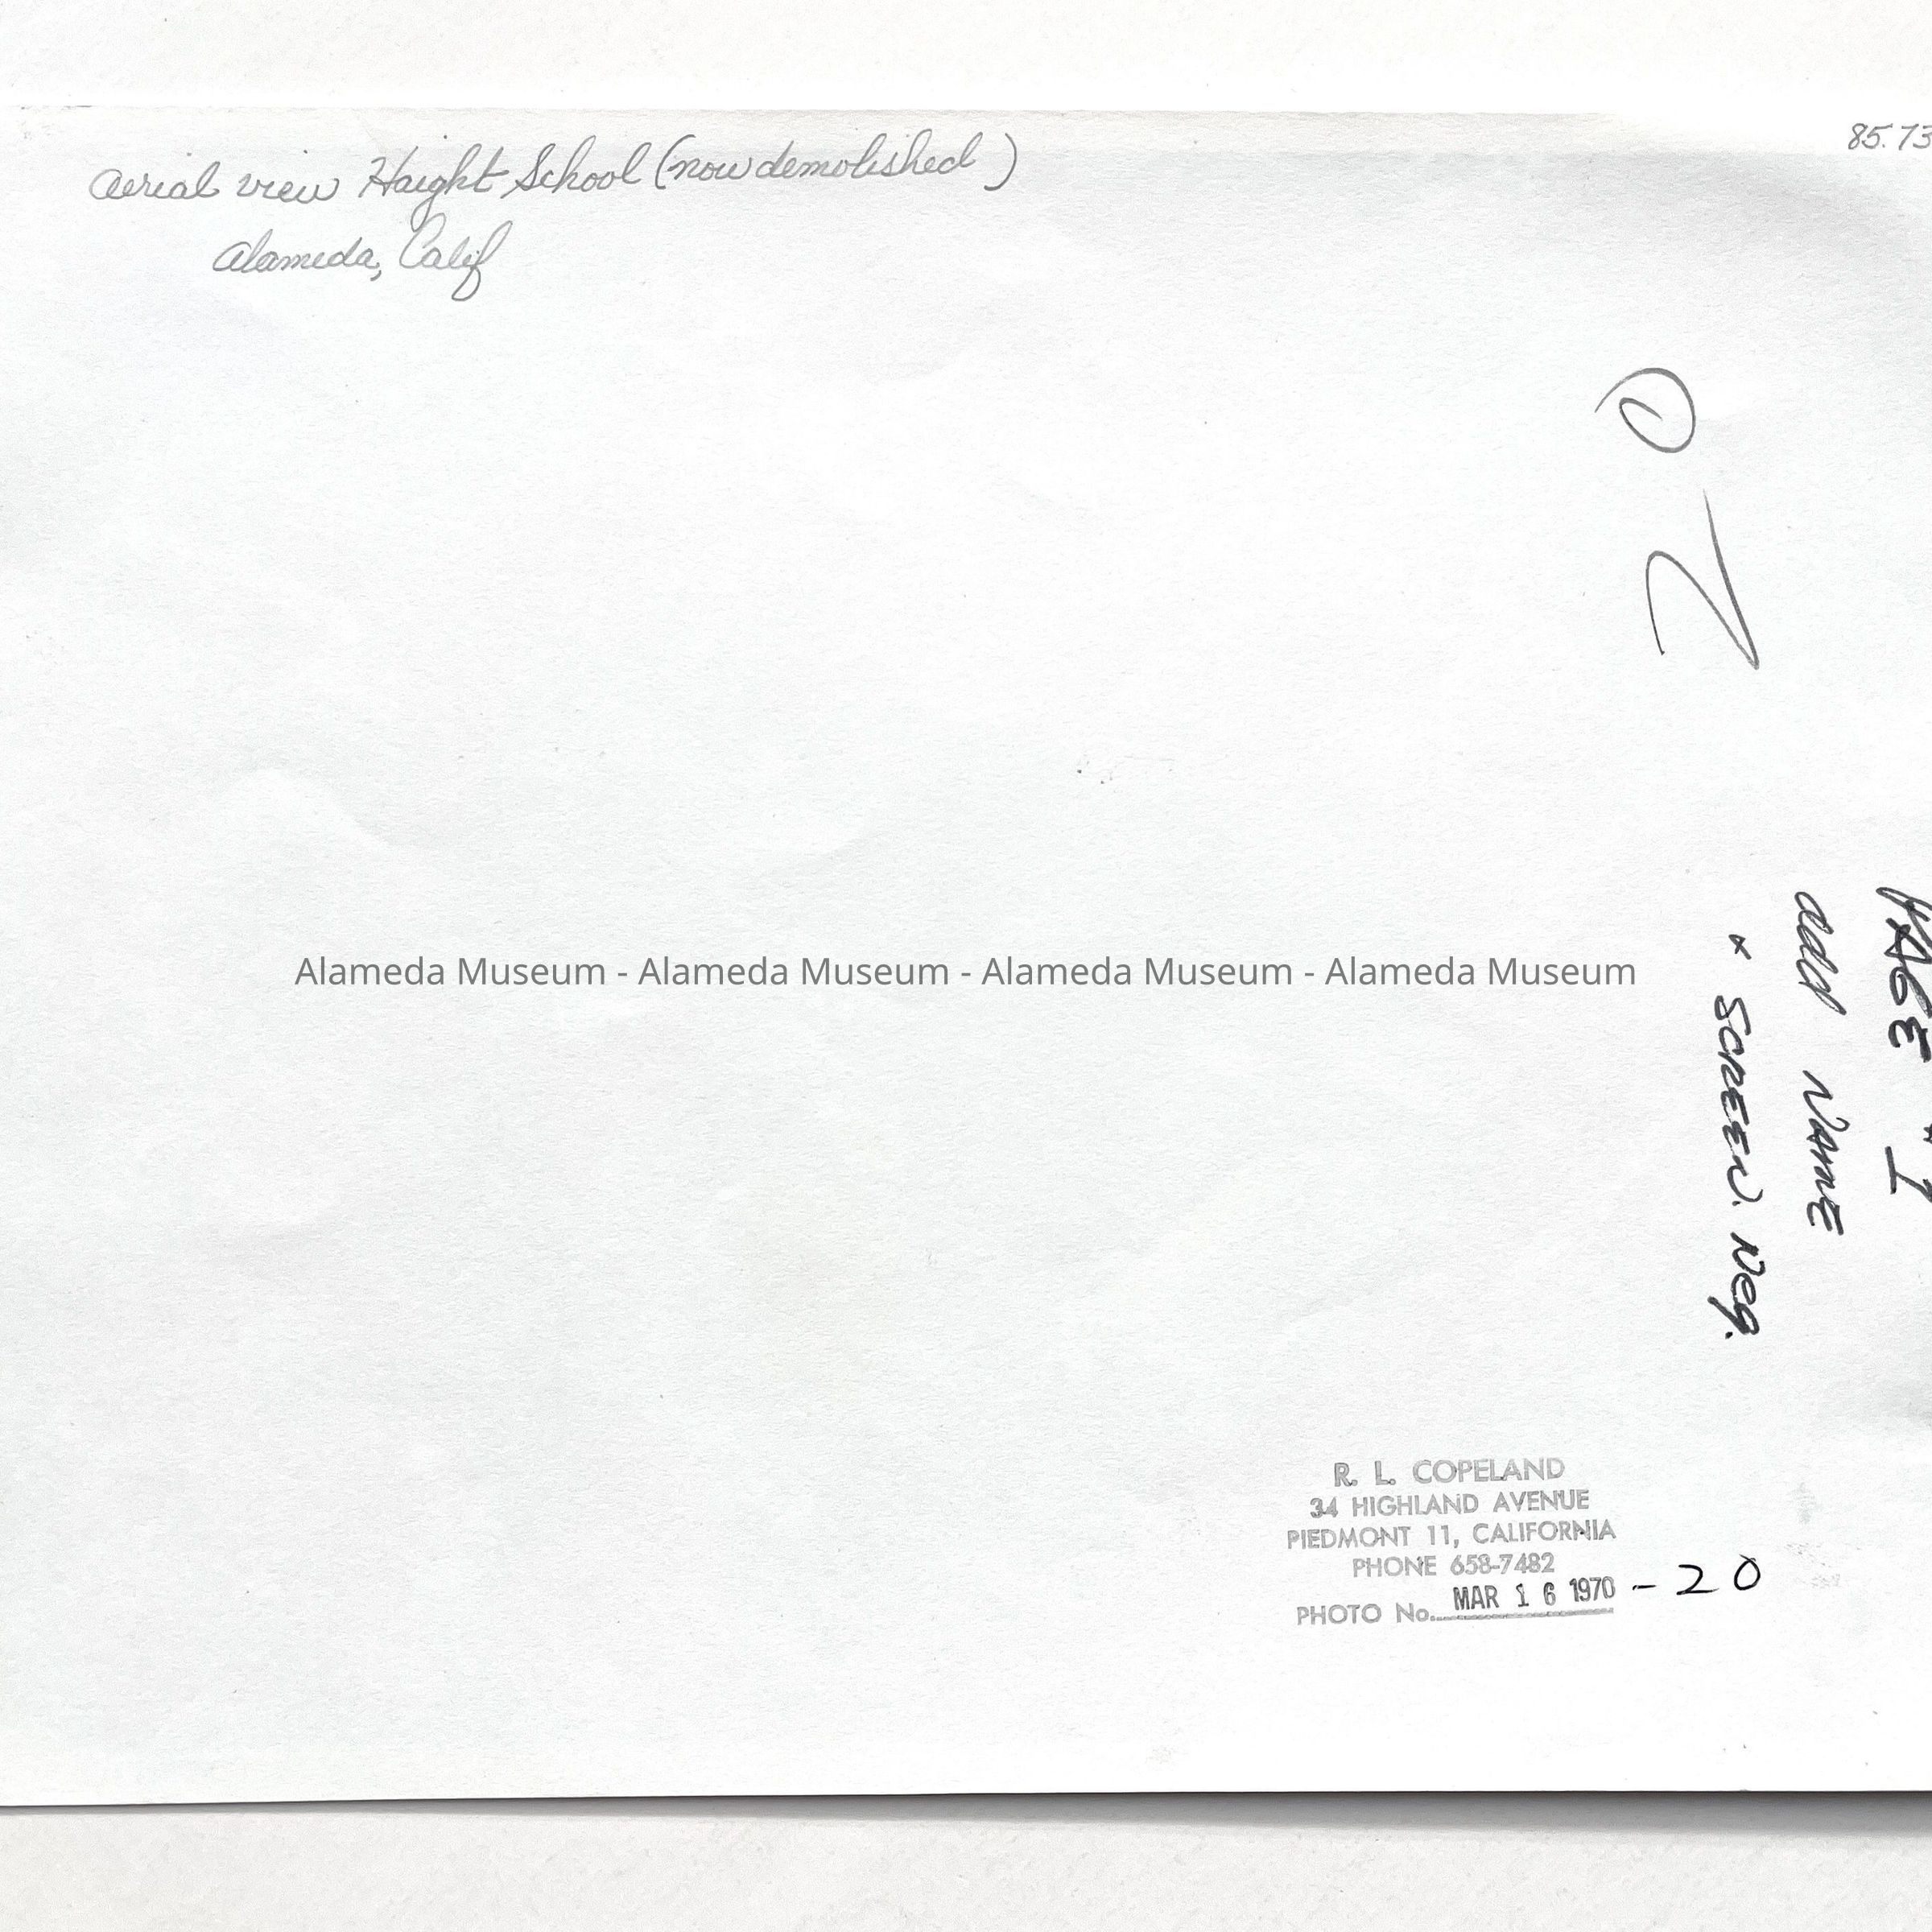 aerial view Haight School (now demolished)
Alameda, Calif
85.73
PAGE "1
add NAME
* SCREEN. Neg.
Alameda Museum - Alameda Museum - Alameda Museum - Alameda Museum
R. L. COPELAND
34 HIGHLAND AVENUE
PIEDMONT 11, CALIFORNIA
PHONE 658-7482
PHOTO No. MAR 16 1970 - 20